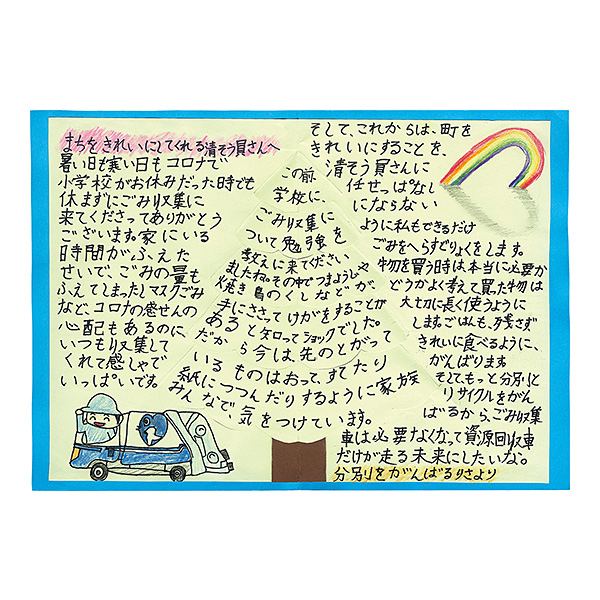 まちをきれいにしてくれる清そう員さんへ
暑い日も寒い日もコロナで
小学校がお休みだった時でも
休まずにごみ収集に
来てくださってありがとう
ございます。家にいる
時間がふえた
せいで、ごみの量も
ふえてしまったしマスクごみ
など、コロナの感せんの
心配もあるのに、
いつも収集して
くれて感しゃで
いっぱいです。
この前
学校に、
ごみ収集に
ついて勉強を
教えに来てください
ましたね。その中でつまようじや
焼き鳥のくしなどが、
手にささってけがをすることが
あると知ってショックでした。
だから今は、先のとがって
いるものはおって、すてたり
紙につつんだりするように家族
みんなで、気をつけています。
そして、これからは、町を
きれいにすることを、
清そう員さんに
任せっぱなし
にならない
ように私もできるだけ
ごみをへらすどりょくをします。
物を買う時は、本当に必要か
どうかよく考えて買た物は
大切に長く使うように
します。ごはんも、残さず
きれいに食べるように、
がんばります。
そしてもっと分別と
リサイクルをがん
ばるから、ごみ収集
車は必要なくなって資源回収車
だけが走る未来にしたいな。
分別をがんばるりさより